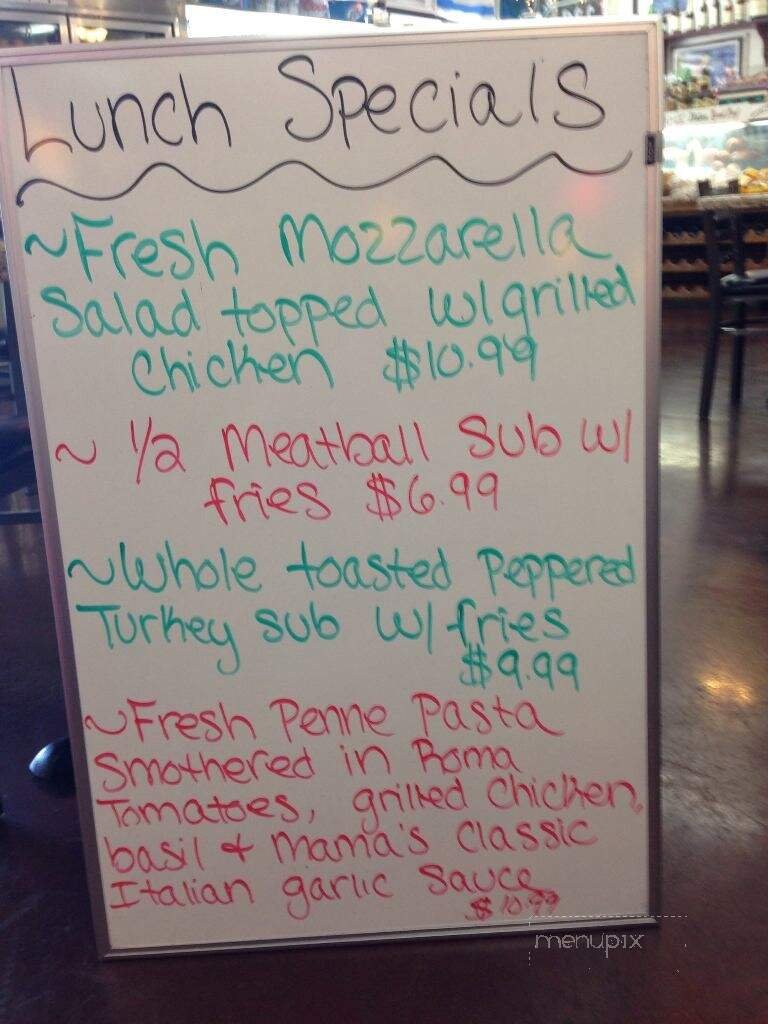 Lunch Specials
~Fresh Mozzarella
Salad topped w/grilled
Chicken $10.99
~ 1/2 Meatball Sub w/
fries $6.99
~Whole toasted Peppered
Turkey sub w/ fries
$9.99
~Fresh Penne Pasta
Smothered in Roma
Tomatoes, grilled Chicken,
basil & Mama's Classic
Italian garlic Sauce
$10.99
menupix